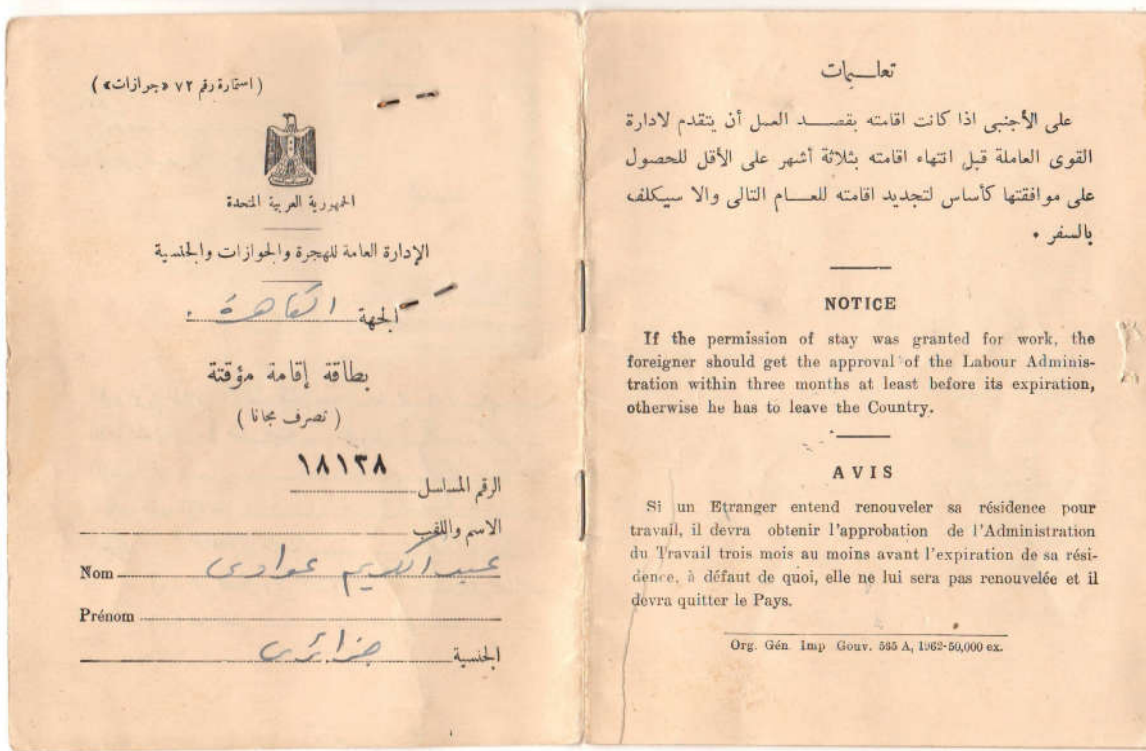 (استمارة رقم ٧٢ «جوازات»)
الجمهورية العربية المتحدة
الإدارة العامة للهجرة والجوازات والجنسية
الجهة القاهرة
بطاقة إقامة مؤقتة
(تصرف مجانا)
١٨١٣٨
الرقم المسلسل
الاسم واللقب
Nom عبد الكريم عوادى
Prénom
الجنسية جزائرى
تعليمات
على الأجنبى اذا كانت اقامته بقصد العمل أن يتقدم لادارة
القوى العاملة قبل انتهاء اقامته بثلاثة أشهر على الأقل للحصول
على موافقتها كأساس لتجديد اقامته للعام التالى والا سيكلف
بالسفر .
NOTICE
If the permission of stay was granted for work, the
foreigner should get the approval of the Labour Adminis-
tration within three months at least before its expiration,
otherwise he has to leave the Country.
AVIS
Si un Etranger entend renouveler sa résidence pour
travail, il devra obtenir l'approbation de l'Administration
du Travail trois mois au moins avant l'expiration de sa rési-
dence, à défaut de quoi, elle ne lui sera pas renouvelée et il
devra quitter le Pays.
Org. Gén. Imp Gouv. 535 A, 1962-50,000 ex.